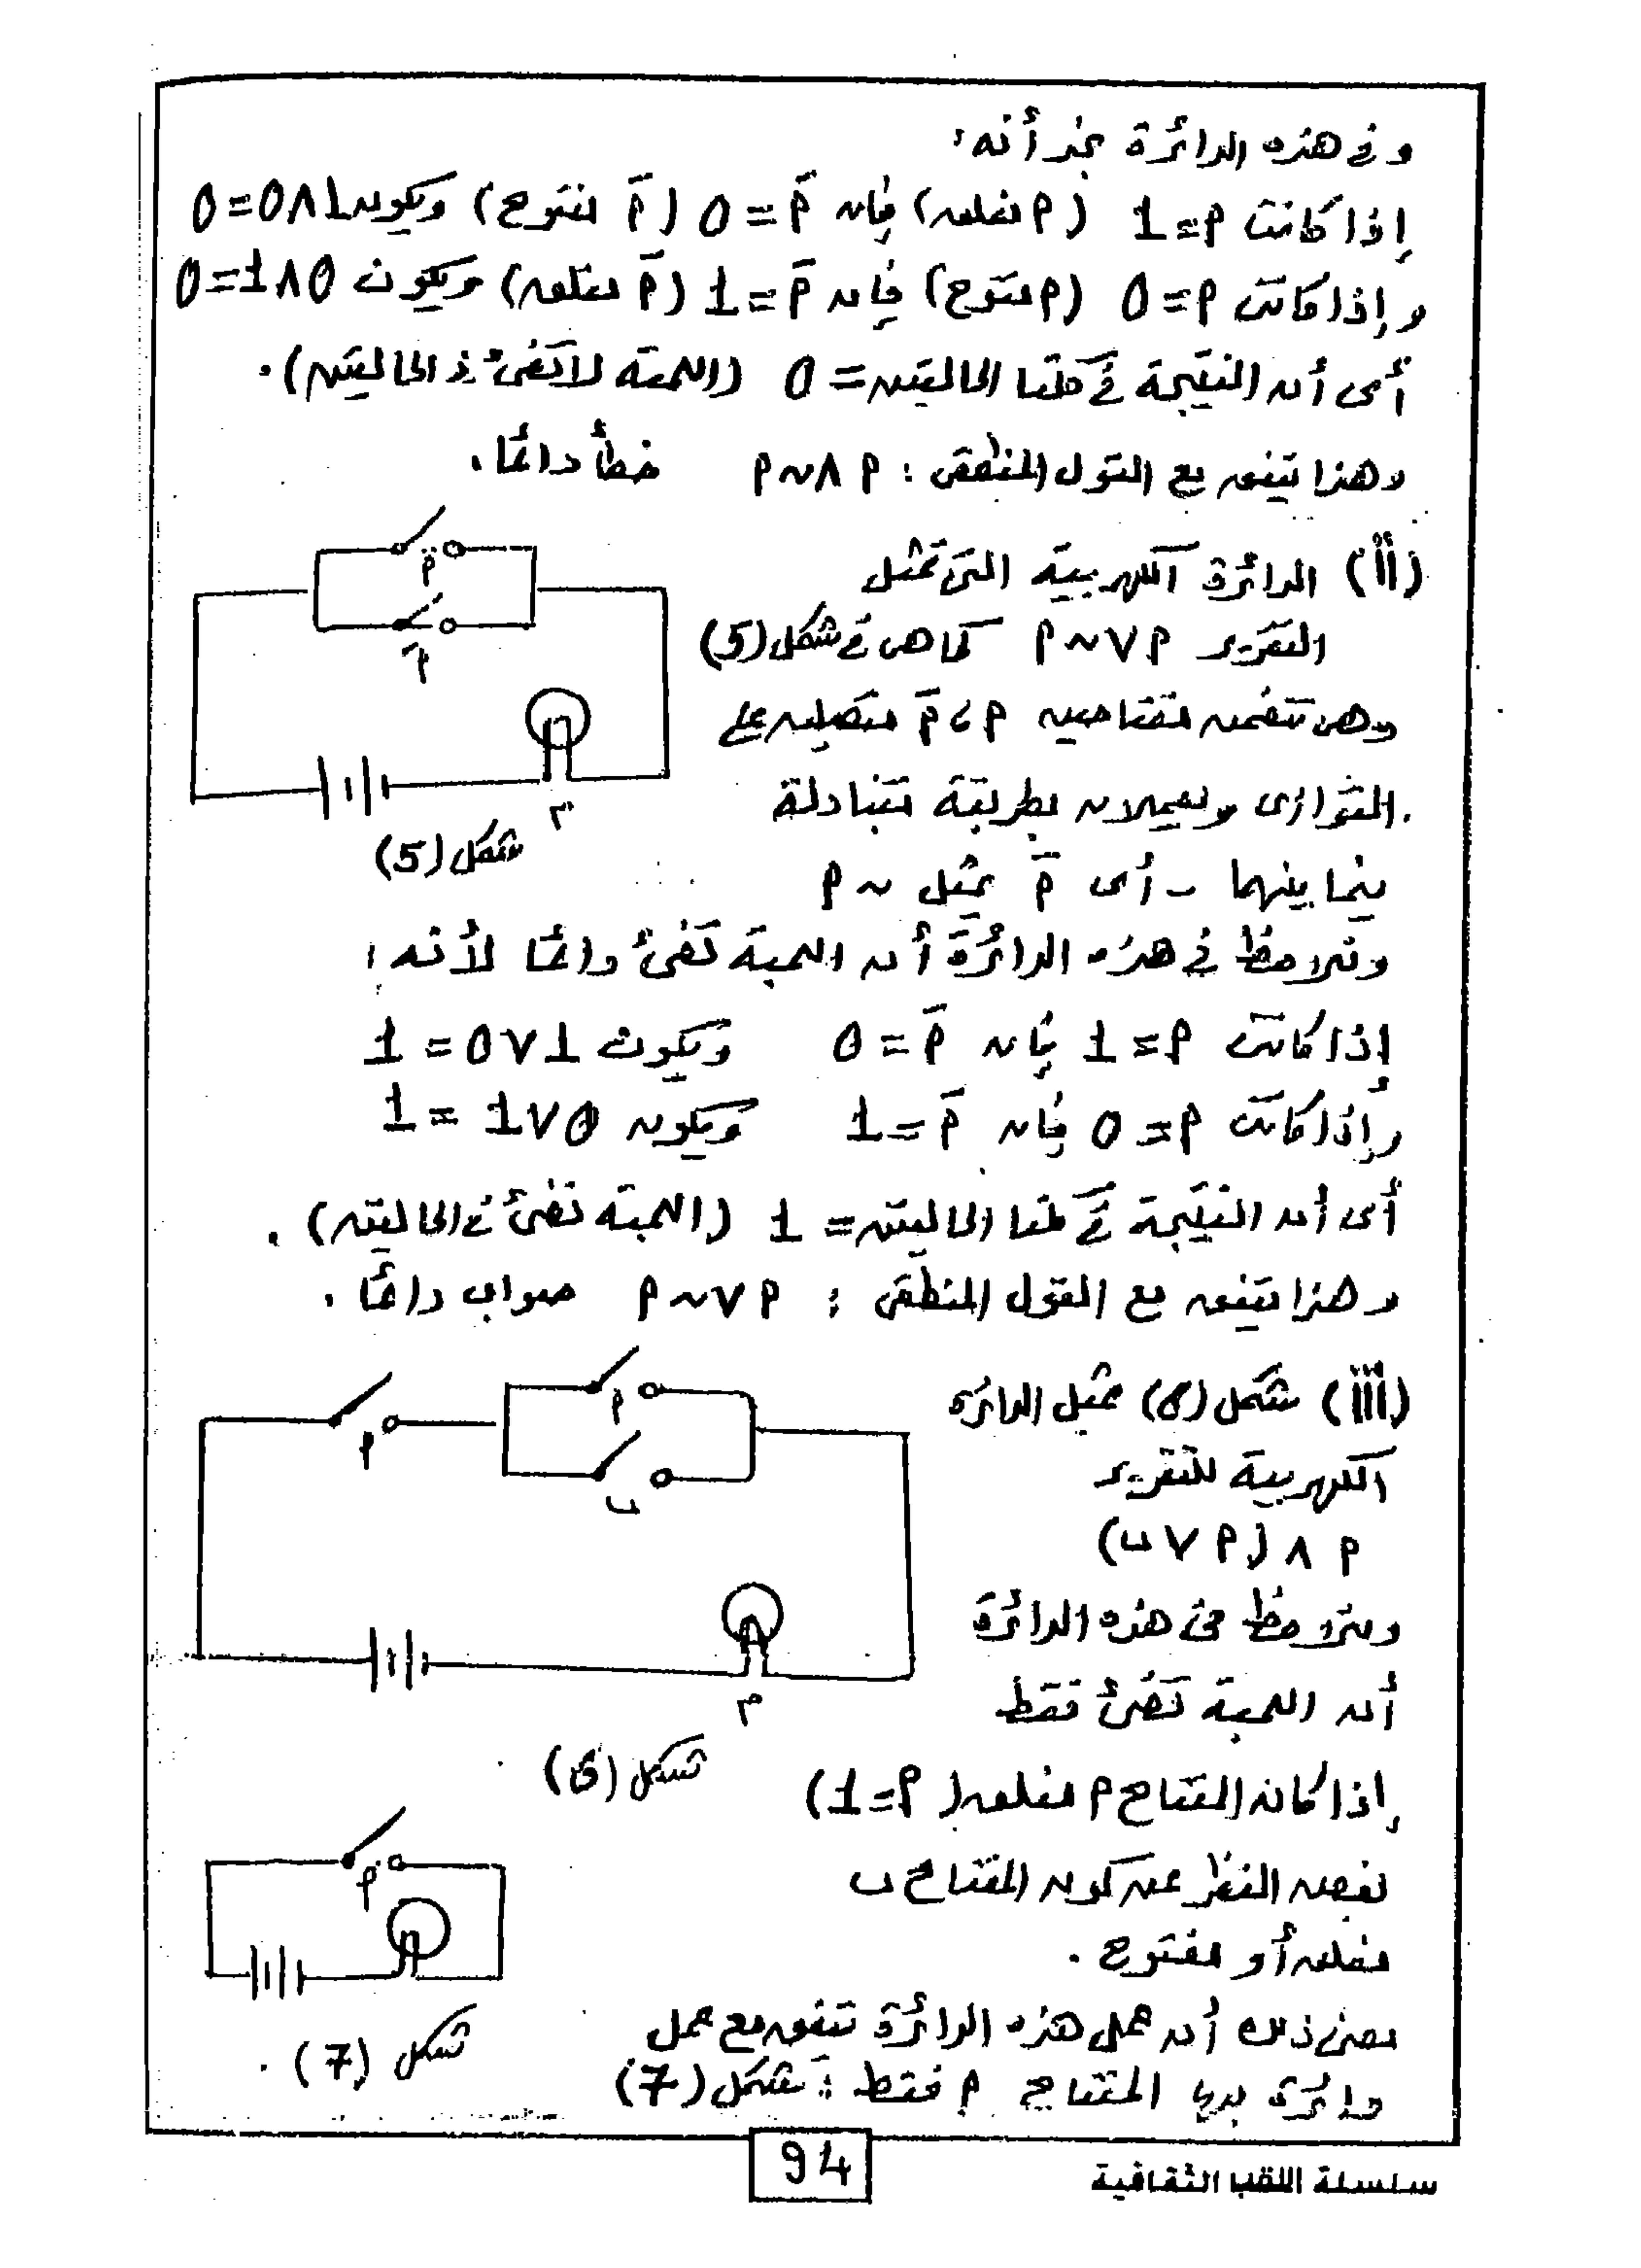 وفى هذه الدائرة نجد أنه:
إذا كانت م = 1 (م مغلق) فإن م̄ = 0 (م̄ مفتوح) ويكون 1∧0 = 0
وإذا كانت م = 0 (م مفتوح) فإن م̄ = 1 (م̄ مغلق) ويكون 0∧1 = 0
أى أن النتيجة فى كلتا الحالتين = 0 (اللمبة لا تضئ فى الحالتين).
وهذا يتفق مع القول المنطقى: م ∧ ~م خطأ دائمًا.
(ii) الدائرة الكهربية التى تمثل
التقرير م ∨ ~م كما هى فى شكل (5)
وهى تتضمن مفتاحين م، م̄ متصلين على
التوازى ويعملان بطريقة متبادلة
فيما بينهما - أى م̄ يمثل ~م
م
م̄
م
شكل (5)
ونلاحظ فى هذه الدائرة أن اللمبة تضئ دائمًا لأنه:
إذا كانت م = 1 فإن م̄ = 0 ويكون 1∨0 = 1
وإذا كانت م = 0 فإن م̄ = 1 ويكون 0∨1 = 1
أى أن النتيجة فى كلتا الحالتين = 1 (اللمبة تضئ فى الحالتين).
وهذا يتفق مع القول المنطقى: م ∨ ~م صواب دائمًا.
(iii) شكل (6) يمثل الدائرة
الكهربية للتقرير
م ∧ (م ∨ ب)
ونلاحظ فى هذه الدائرة
أن اللمبة تضئ فقط
إذا كان المفتاح م مغلق (م = 1)
بغض النظر عن كون المفتاح ب
مغلق أو مفتوح.
م
م
ب
م
شكل (6)
معنى ذلك أن عمل هذه الدائرة يتفق مع عمل
دائرة بها المفتاح م فقط: شكل (7)
م
شكل (7).
94
سلسلة اللقب الثقافية